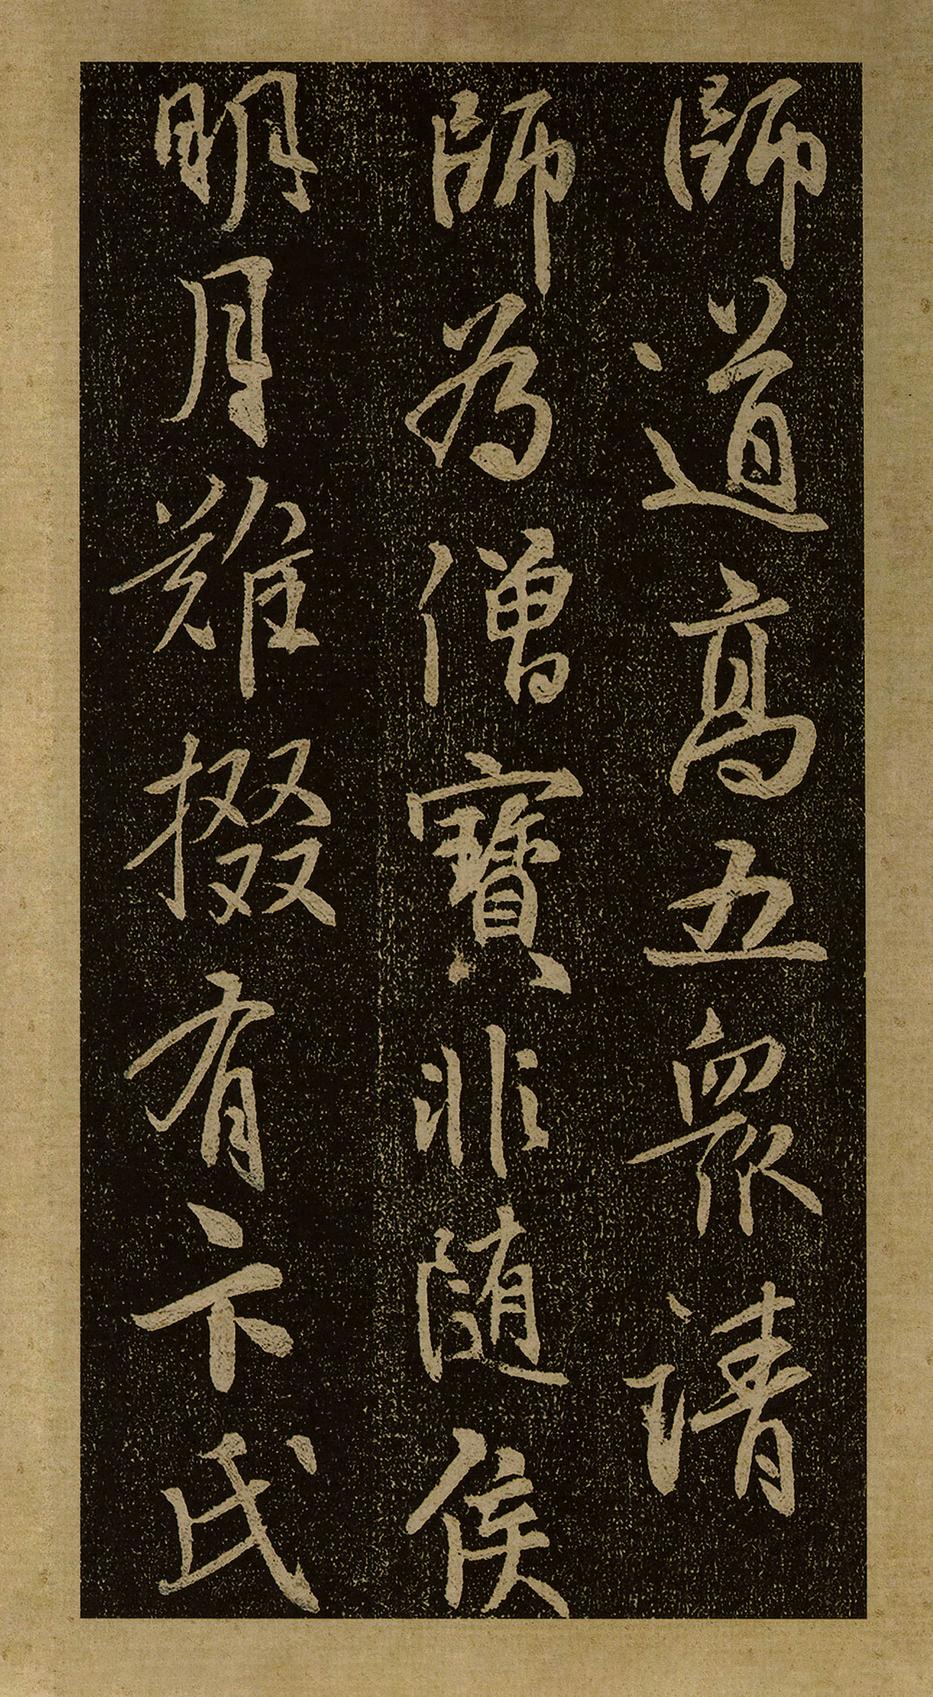 師道高五眾請
師為僧寶非隨侯
明月難掇有卞氏